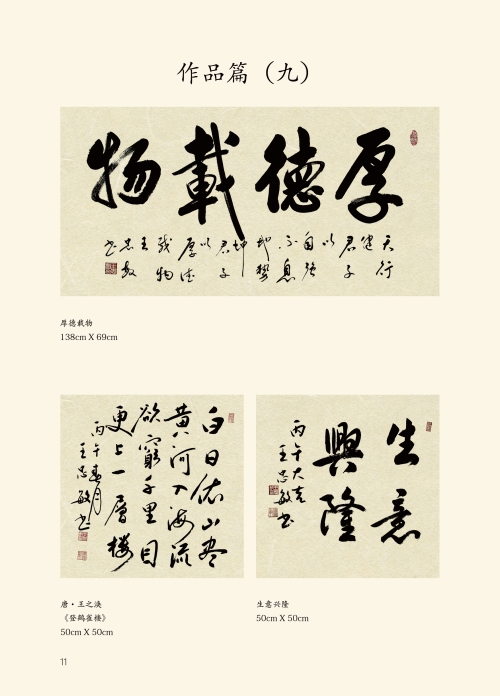 作品篇（九）
厚德載物
天行
健
君子
以
自强
不息
地势
坤
君子
以
厚德
载物
王
忠敏
书
厚德载物
138cm X 69cm
白日依山尽
黄河入海流
欲窮千里目
更上一層楼
丙午春月
王忠敏书
唐·王之涣
《登鹳雀楼》
50cm X 50cm
生意
興隆
丙午大吉
王忠敏书
生意兴隆
50cm X 50cm
11